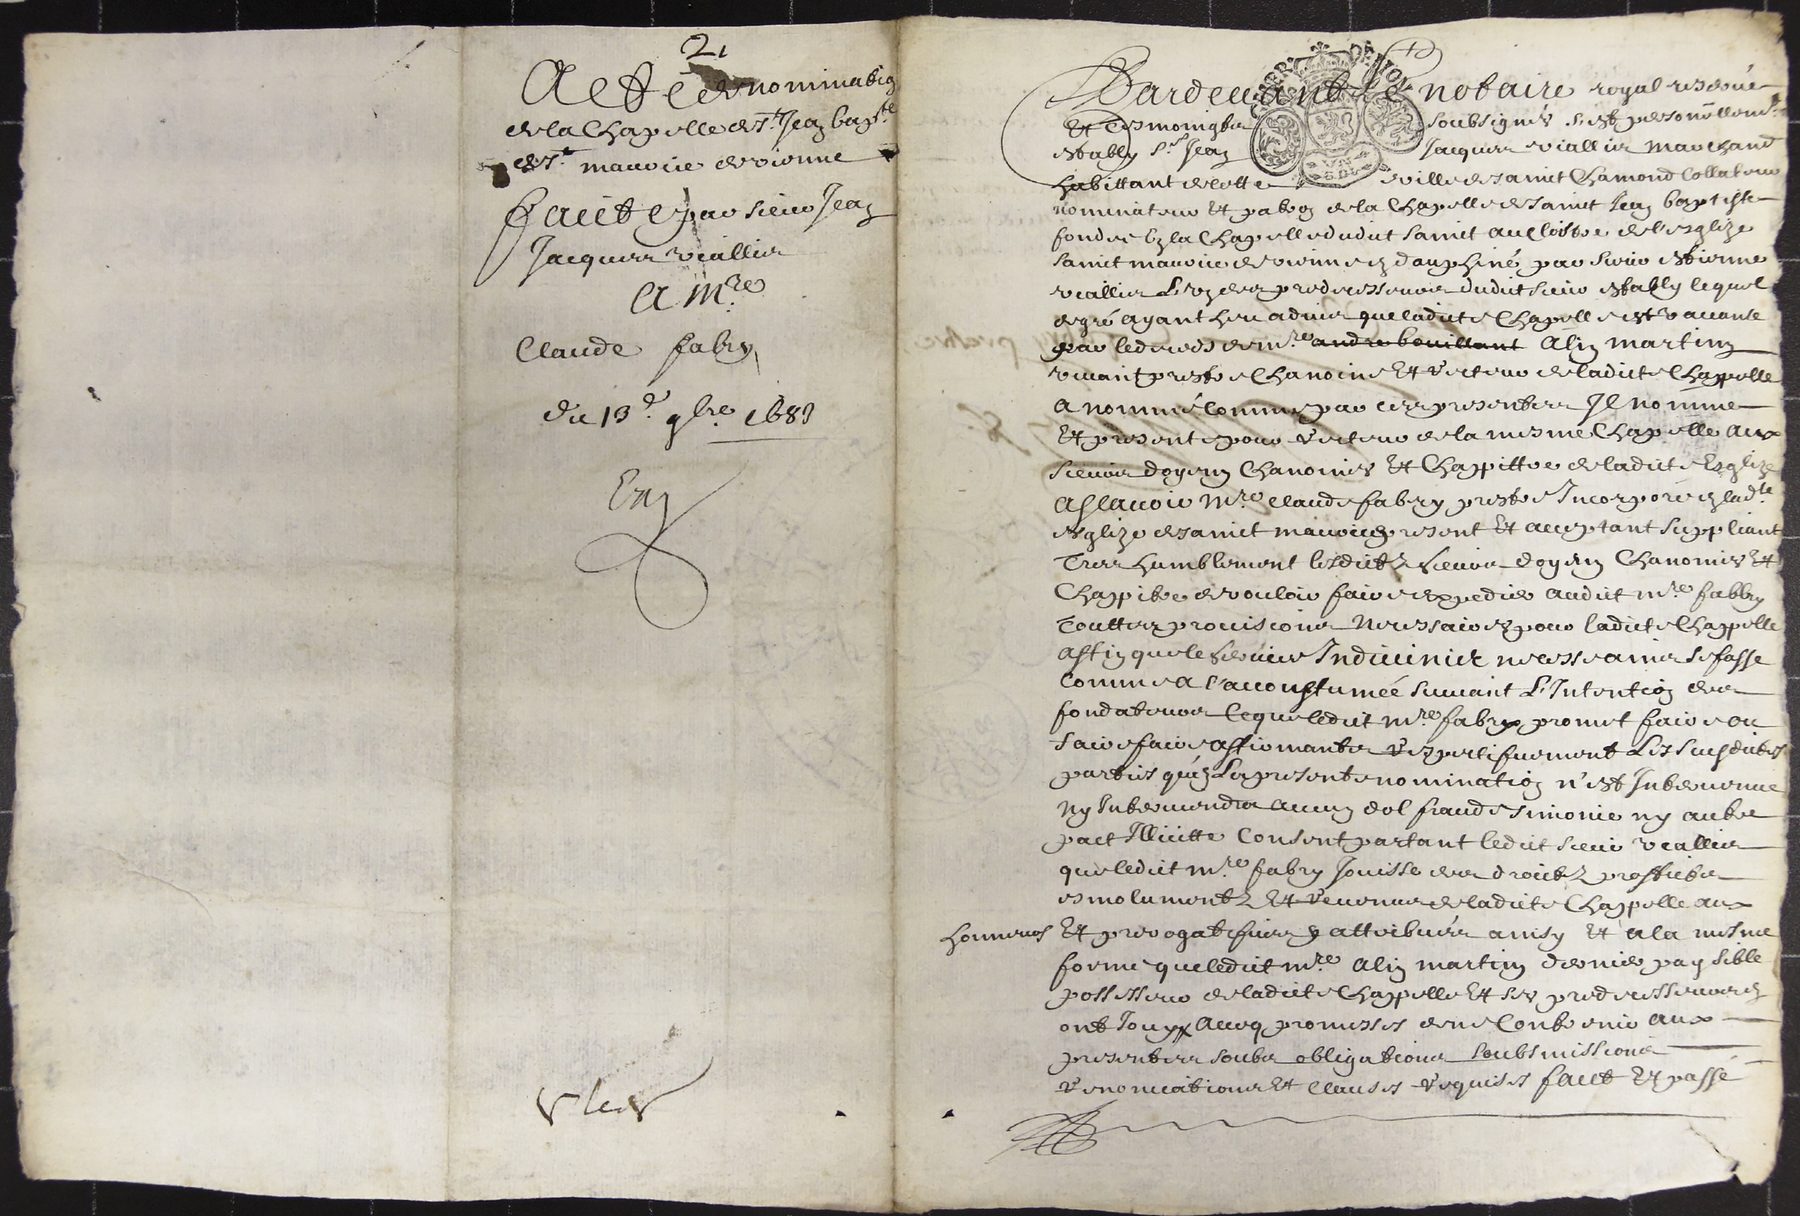 21
Acte de nomination
de la Chapelle de St Jean bapte
de St maurice de vienne
faicte par sieur Jean
Jacques viallier
A Mre
Claude fabry
du 13e 9bre 1683
Pardevant le notaire royal reserve
Et Tesmoingtz soubsignés s'est personnellemt
estably Sr Jean Jacques viallier Marchand
habittant de cette ville de sainct Chamond Collateur
nominateur Et patron de la Chapelle de sainct Jean baptiste
fondée En la Chapelle dudict sainct au Cloistre de l'esglize
sainct maurice de vienne En dauphiné par sieur estienne
viallier L'un des predecesseurs dudict sieur estably lequel
de gré ayant heu advis que ladicte Chapelle est vaccante
par le deceds de Mre andre bouillant Alin Martin
vivant prestre Chanoine Et recteur de ladicte Chappelle
A nommé Comme par ces presentes Il nomme
Et presente pour recteur de la mesme Chapelle Aux
sieurs doyen Chanoines Et Chappittre de ladicte Esglize
Asscavoir Mre Claude fabry prestre Incorporé En ladte
esglize de sainct maurice present Et acceptant suppliant
Tres humblement lesdictz sieurs doyen Chanoines Et
Chappitre de vouloir faire expedier audict Mre fabbry
Touttes provisions Necessaires pour ladicte Chappelle
Affin que le service Indivinier necessaire se fasse
Comme a l'accoustumée suivant L'Intention des
fondateurs Ce que ledict Mre fabry promet faire ou
faire faire affirmantz respectifvement Les susdictes
parties qu'en La presente nomination n'est Intervenue
Ny Interviendra aucun dol fraude simonie ny autre
pact Illicitte Consent partant ledict sieur viallier
que ledict Mre fabry Jouisse des droictz proffictz
esmolumentz Et revenus de ladicte Chappelle aux
honneurs Et prerogatifves y attribuées ainsy Et a la mesme
forme que ledict Mre Alin Martin dernier paysible
possesseur de ladicte Chappelle Et ses predecesseurs En
ont Jouy Avecq promesses de ne Contrevenir aux
presentes soubz obligations soubsmissions
renonciations Et Clauses requises faict Et passé